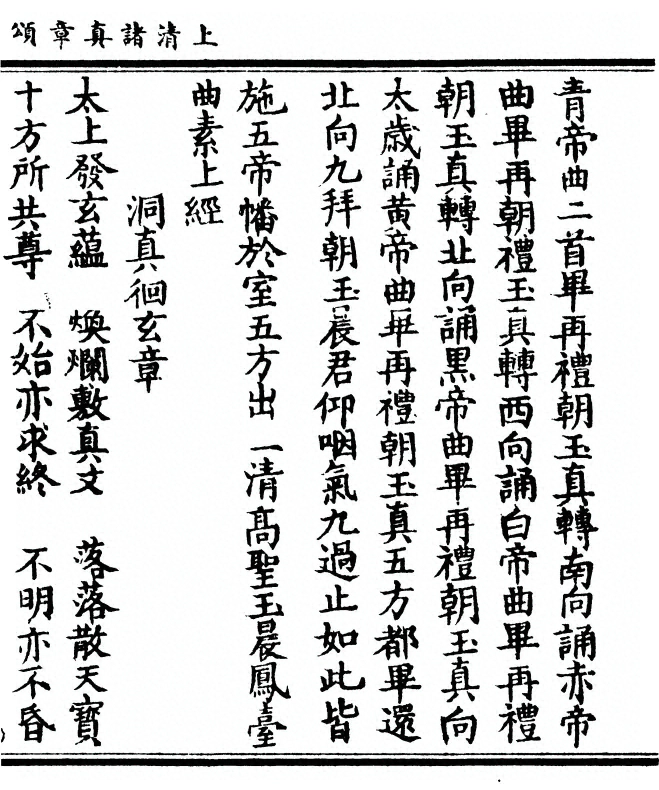 上清諸真章頌
青帝曲二首畢再禮朝玉真轉南向誦赤帝
曲畢再朝禮玉真轉西向誦白帝曲畢再禮
朝玉真轉北向誦黑帝曲畢再禮朝玉真向
太歲誦黃帝曲畢再禮朝玉真五方都畢還
北向九拜朝玉晨君仰咽氣九過止如此皆
施五帝幡於室五方出一清高聖玉晨鳳臺
曲素上經
洞真徊玄章
太上發玄蘊 煥爛敷真文 落落散天寶
十方所共尊 不始亦求終 不明亦不昏